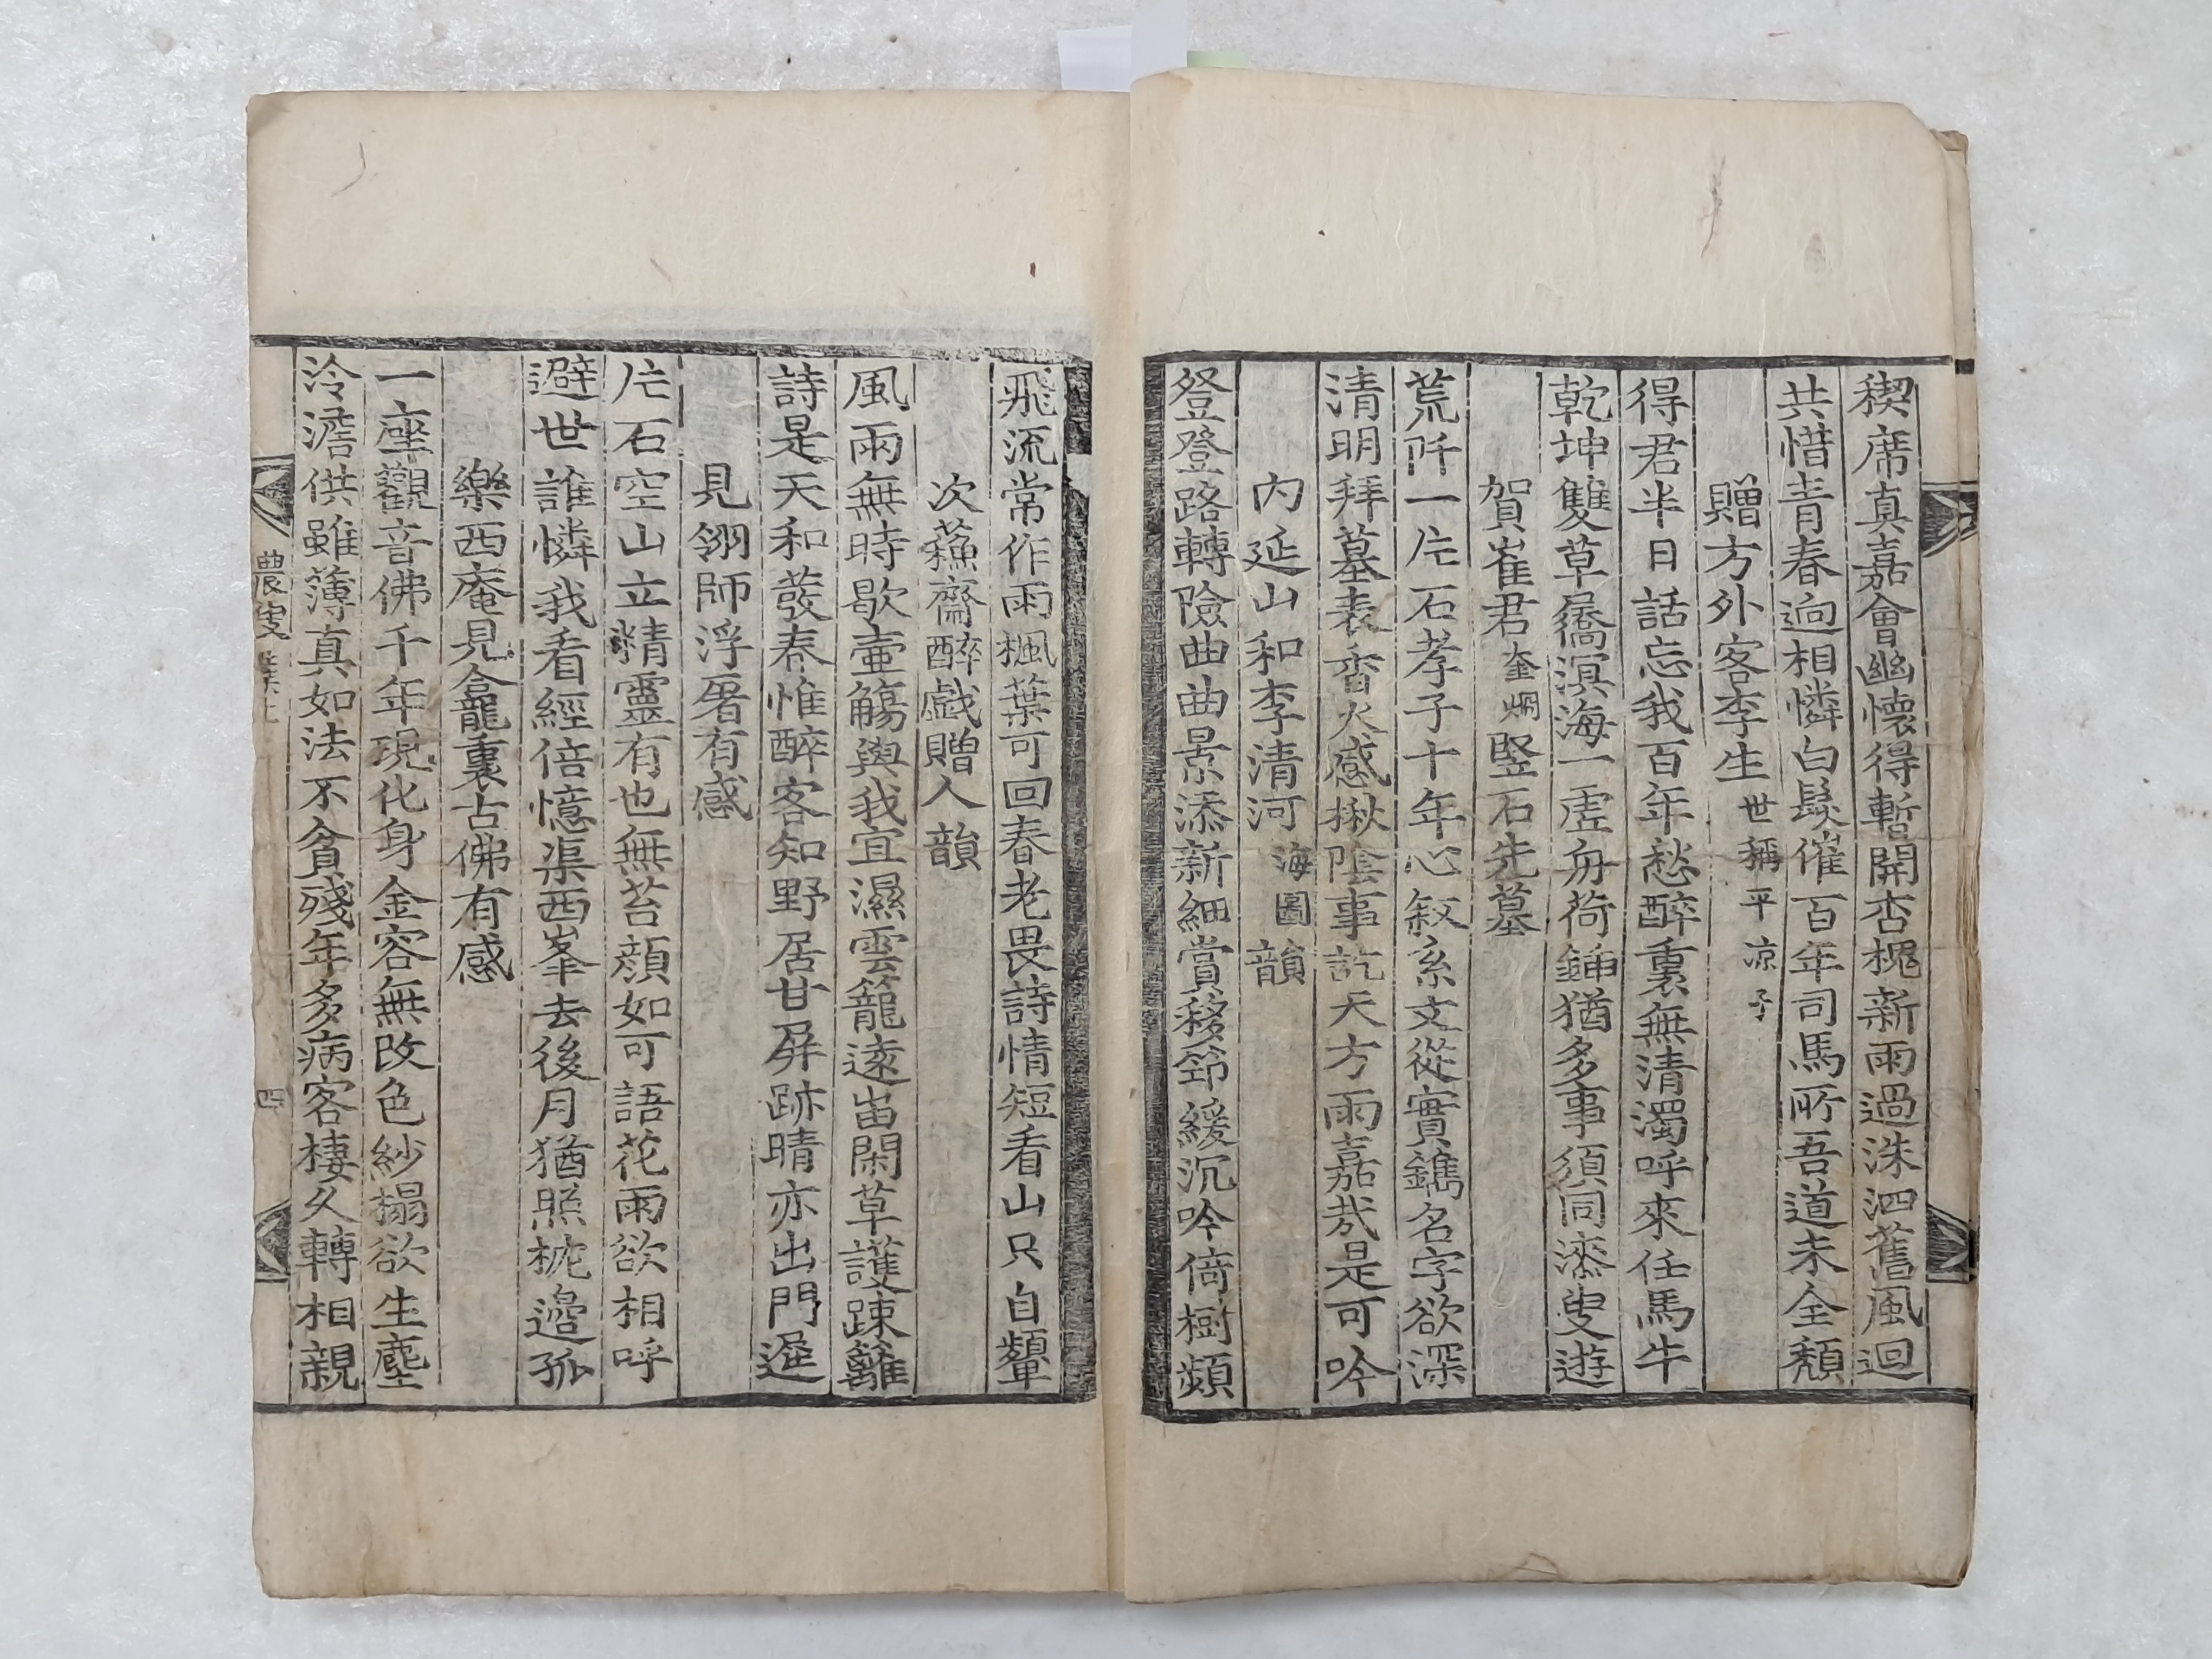 稧席真嘉會幽懷得暫開杏槐新雨過洙泗舊風迴
共惜青春逈相憐白髮催百年司馬所吾道未全頹
贈方外客李生世稱平凉子
得君半日話忘我百年愁醉裏無清濁呼來任馬牛
乾坤雙草屩溟海一虛舟荷鍤猶多事須同漆叟遊
賀崔君奎烱竪石先墓
荒阡一片石孝子十年心叙系文從實鐫名字欲深
清明拜墓表香火感楸陰事訖天方雨嘉㢤是可吟
內延山和李清河海圖韻
登登路轉險曲曲景添新細賞移筇緩沉吟倚樹頻
飛流常作雨楓葉可回春老畏詩情短看山只自顰
次蘓齋醉戱贈人韻
風雨無時歇壷觴與我宜濕雲籠遠峀閑草護踈籬
詩是天和發春惟醉客知野居甘屛跡晴亦出門遲
見翎師浮屠有感
片石空山立精靈有也無苔顔如可語花雨欲相呼
避世誰憐我看經倍憶渠西峯去後月猶照枕邊孤
樂西庵見龕裏古佛有感
一座觀音佛千年現化身金容無改色紗榻欲生塵
冷澹供雖薄真如法不貧殘年多病客棲久轉相親
農叟集上
四